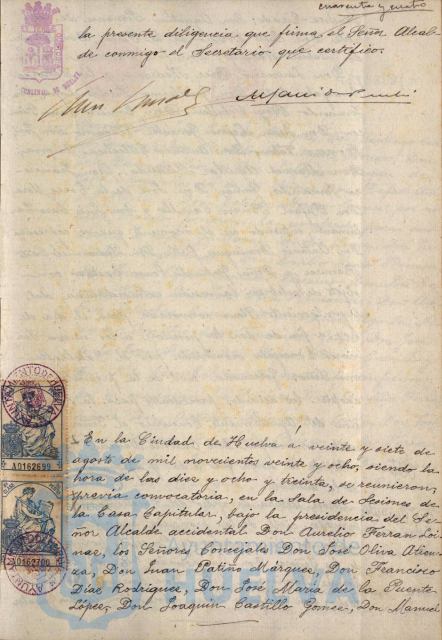 cuarenta y cuatro
la presente diligencia que firma el Señor Alcal-
de conmigo el Secretario que certifico.
AYUNTAMIENTO DE HUELVA
A0162699
A0162700
En la Ciudad de Huelva á veinte y siete de
agosto de mil novecientos veinte y ocho, siendo la
hora de las diez y ocho y treinta, se reunieron,
previa convocatoria, en la Sala de Sesiones de
la Casa Capitular, bajo la presidencia del Se-
ñor Alcalde accidental Don Aurelio Ferran Loi-
naz, los Señores Concejales Don José Oliva Atien-
za, Don Juan Patiño Márquez, Don Francisco
Díaz Rodríguez, Don José María de la Puente
López, Don Joaquin Castillo Gómez, Don Manuel
HUELVA